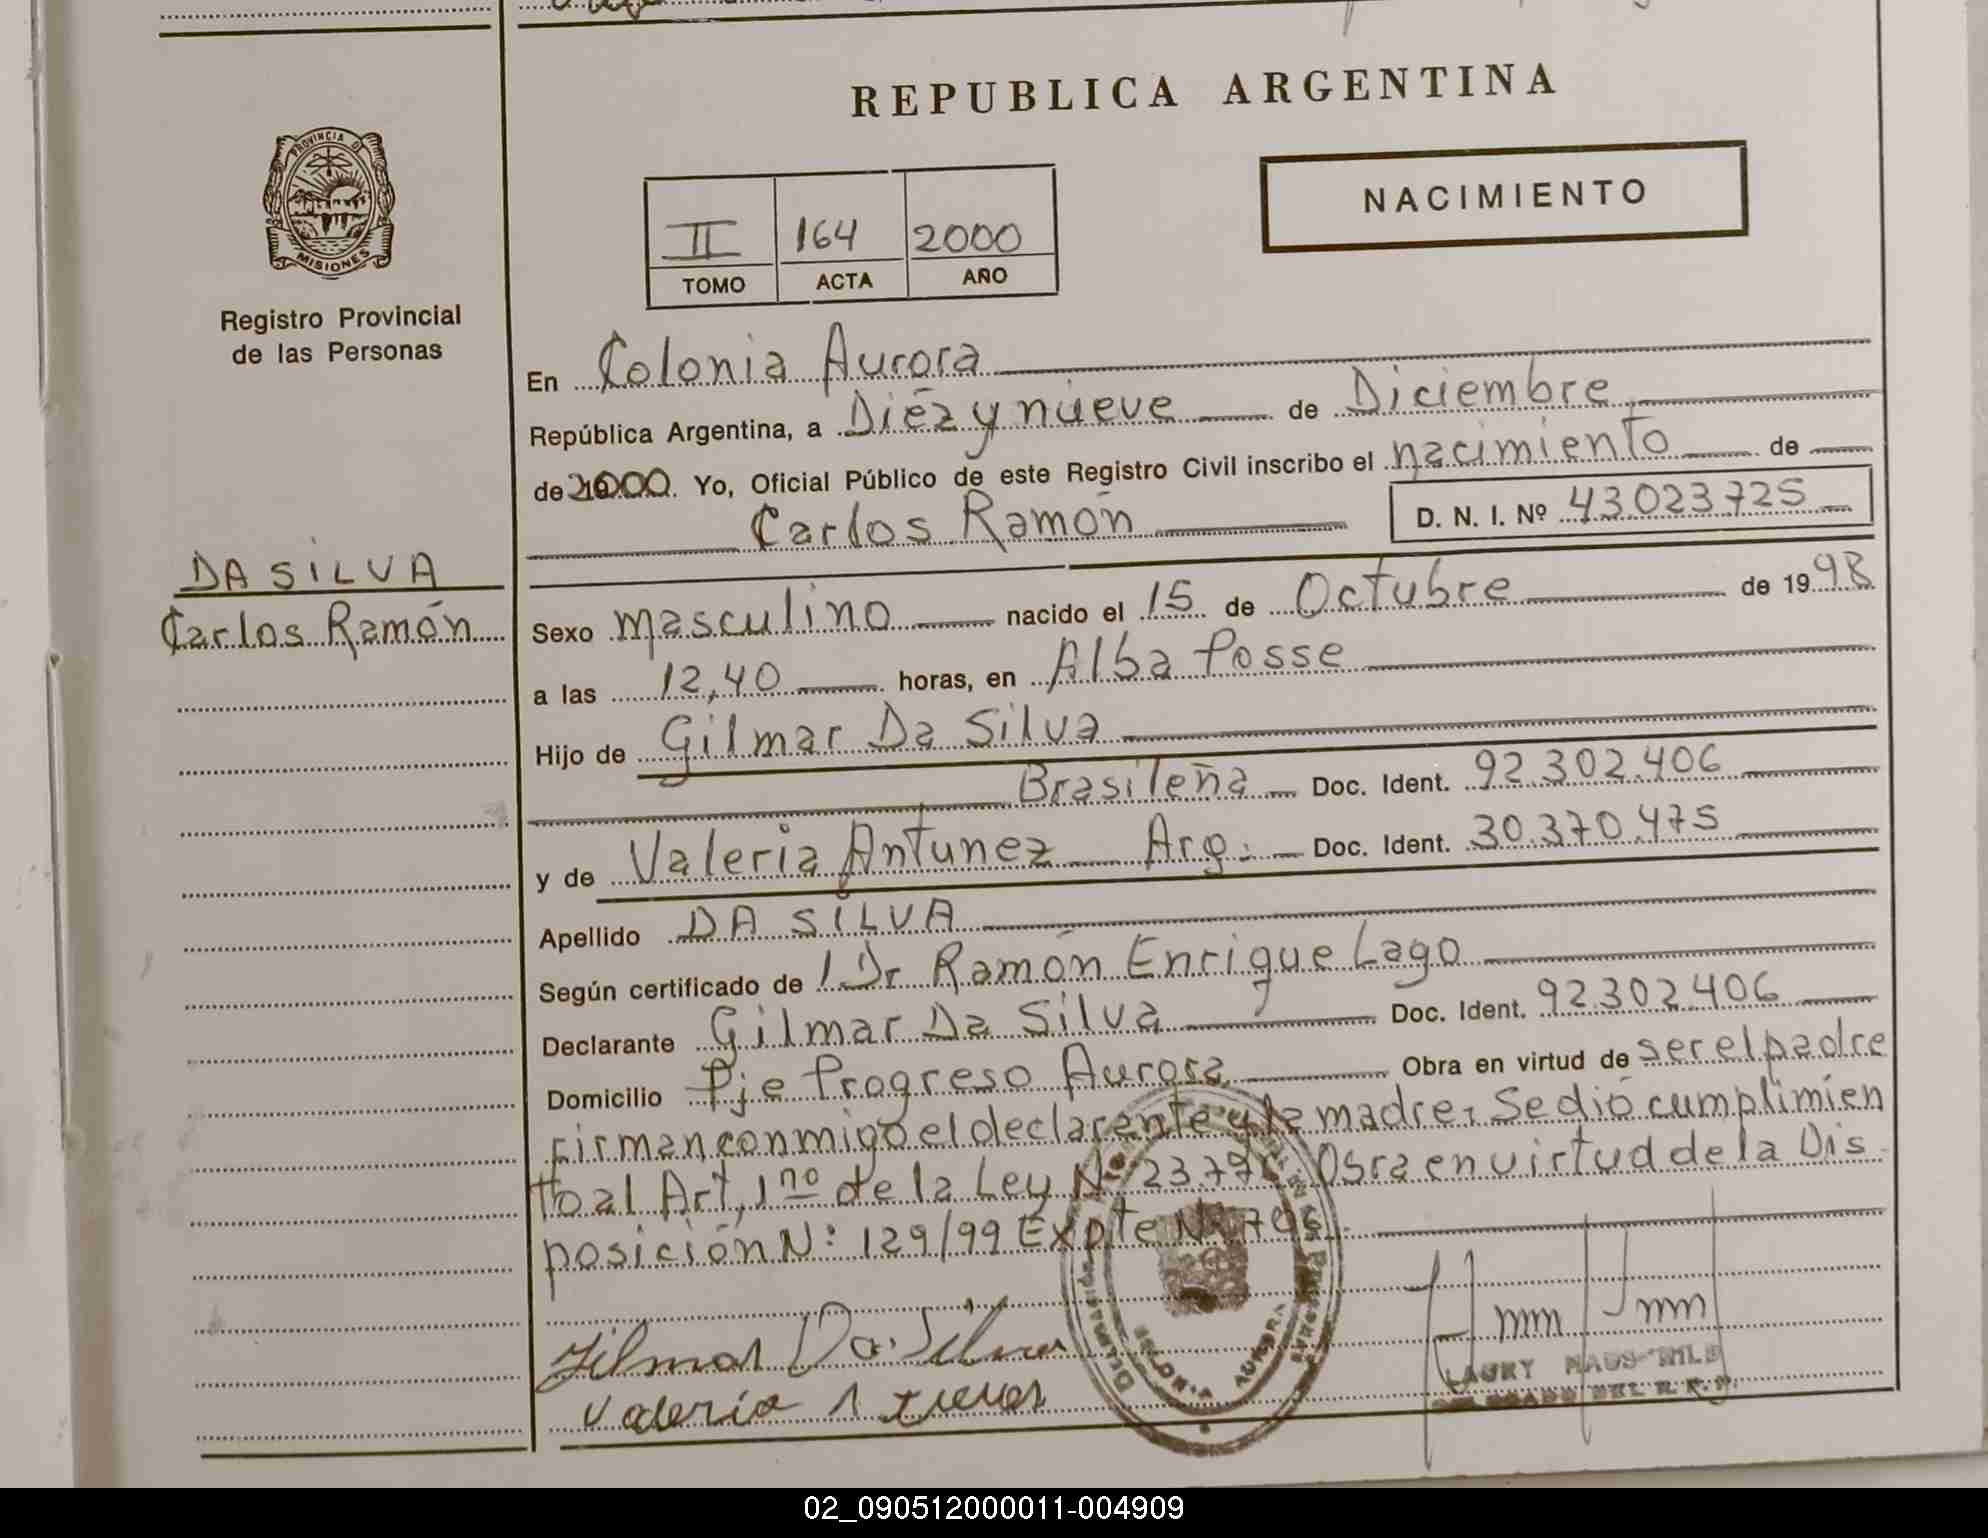 REPUBLICA ARGENTINA
PROVINCIA D
MISIONES
Registro Provincial
de las Personas
NACIMIENTO
II 164 2000
TOMO ACTA AÑO
En Colonia Aurora
República Argentina, a Diéz y nueve de Diciembre
de 2000. Yo, Oficial Público de este Registro Civil inscribo el nacimiento de
Carlos Ramón D. N. I. Nº 43.023.725
DA SILVA
Carlos Ramón
Sexo masculino nacido el 15 de Octubre de 1998
a las 12,40 horas, en Alba Posse
Hijo de Gilmar Da Silva
Brasileña Doc. Ident. 92.302.406
y de Valeria Antunez Arg. Doc. Ident. 30.370.475
Apellido DA SILVA
Según certificado de Dr Ramón Enrique Lago
Declarante Gilmar Da Silva Doc. Ident. 92.302.406
Domicilio Pje Progreso Aurora Obra en virtud de ser el padre
Firman conmigo el declarante y la madre. Se dió cumplimien
to al Art, 1no de la Ley Nº Obra en virtud de la Dis
posición N: 129/99 Expte Nº
Gilmar Da Silva
Valeria
COLONIA AURORA
LAURY
DELEGADO DEL R.P.P.
02_090512000011-004909